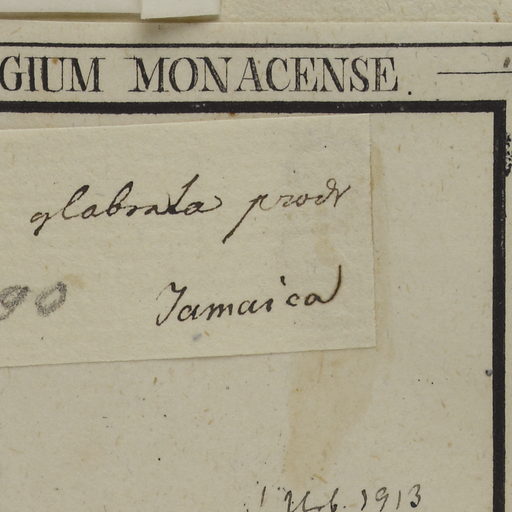 GIUM MONACENSE.
glabrata prodr
90
Jamaica
1913